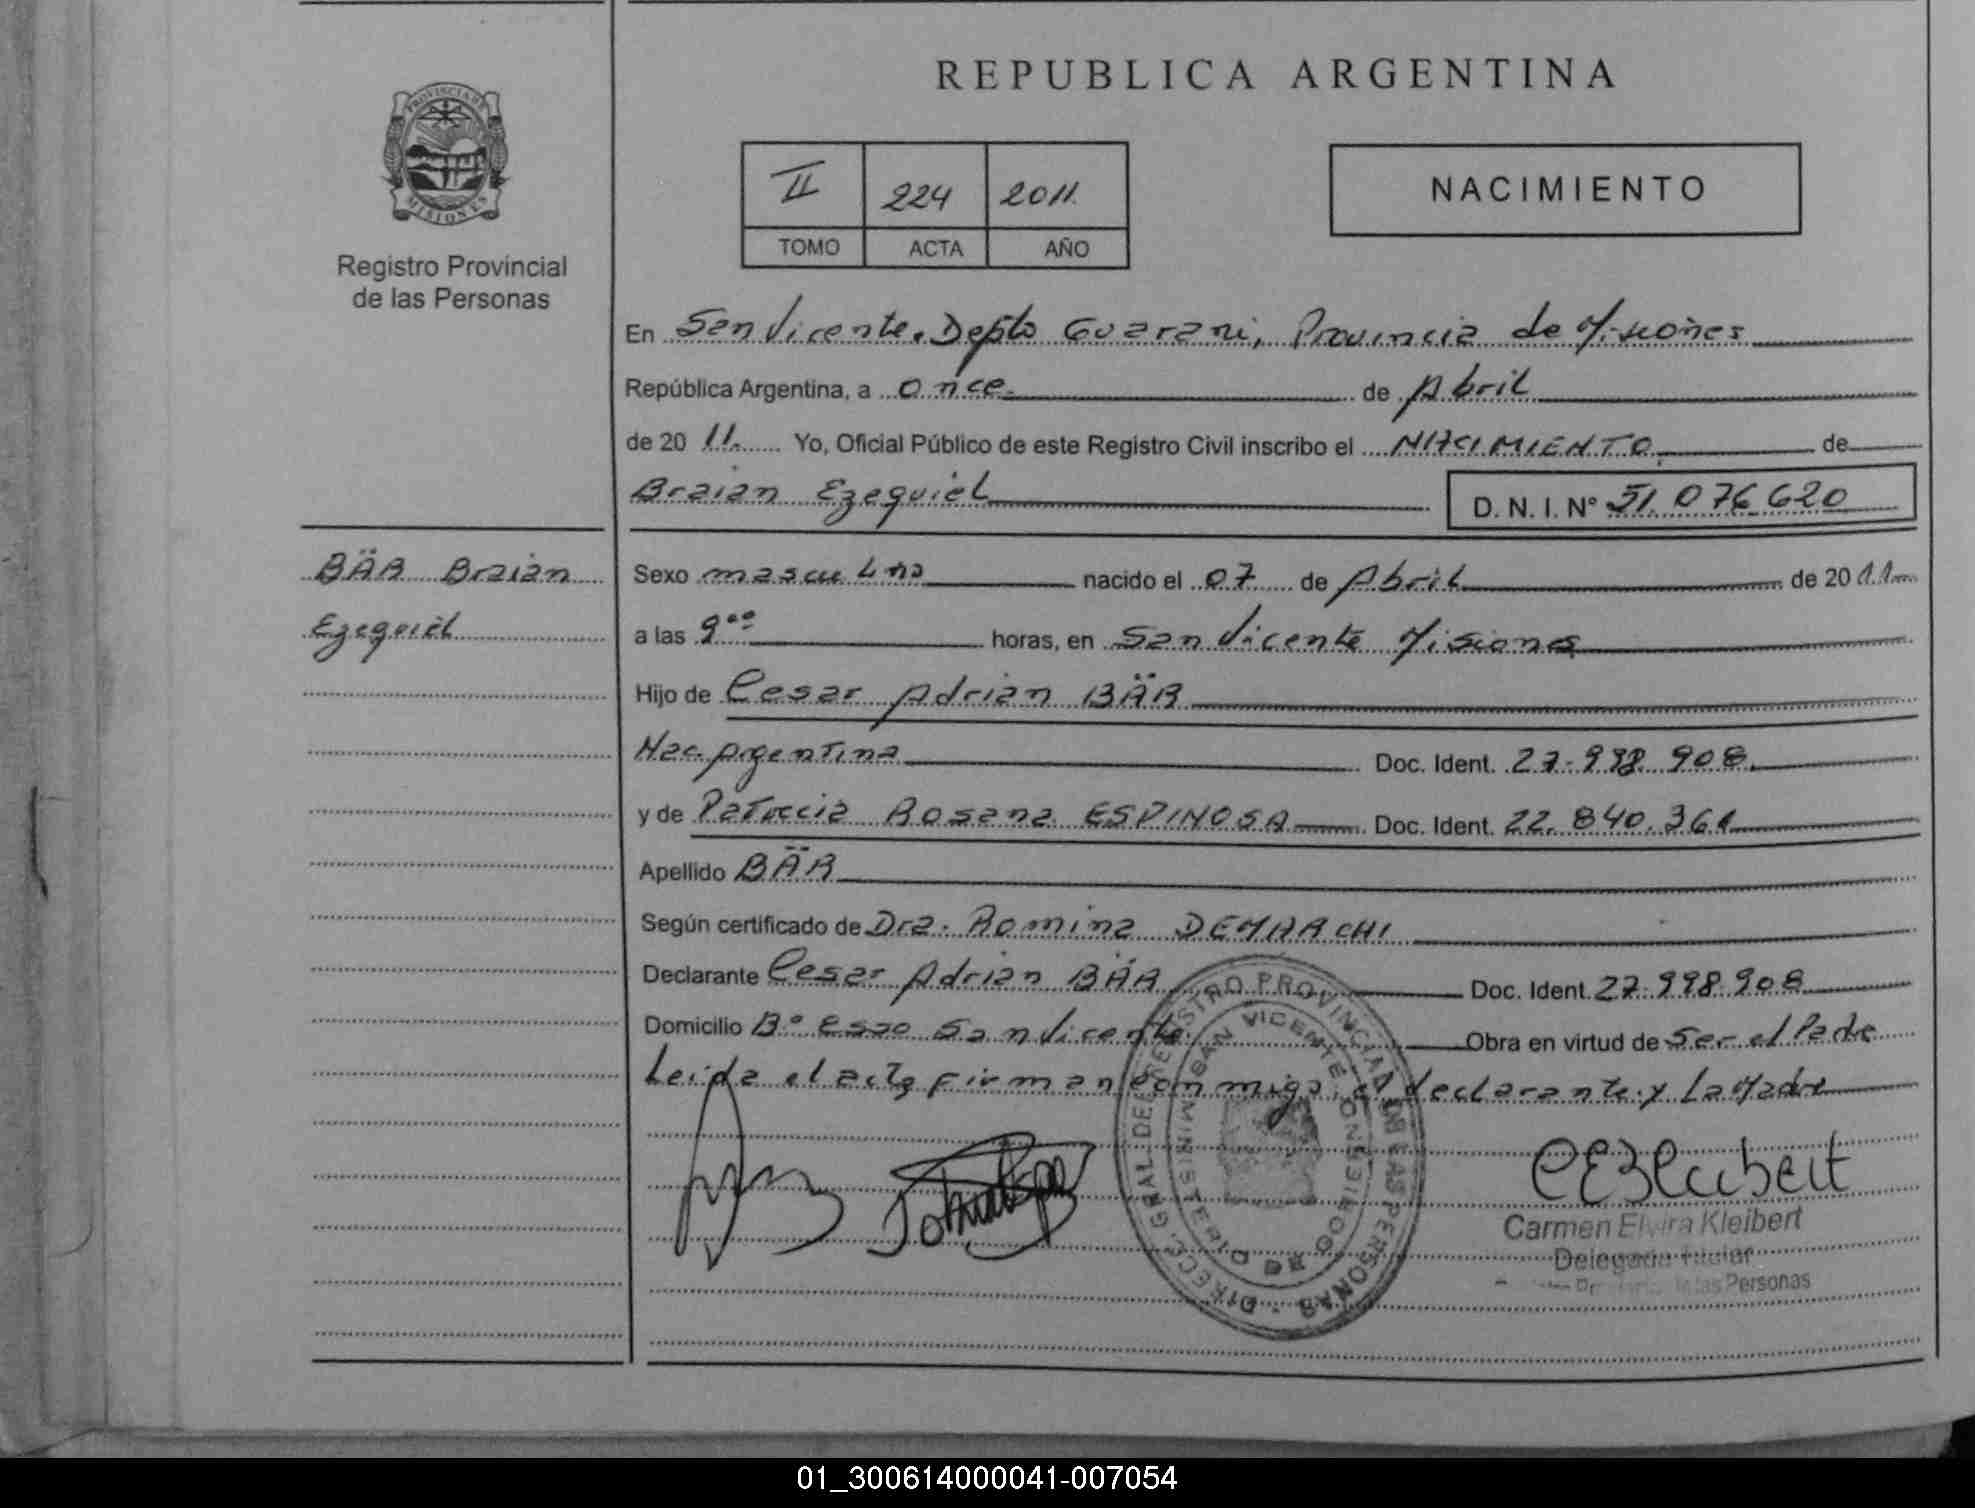 REPUBLICA ARGENTINA
PROVINCIA DE
MISIONES
Registro Provincial
de las Personas
II 224 2011
TOMO ACTA AÑO
NACIMIENTO
En San Vicente, Depto Guarani, Provincia de Misiones
República Argentina, a once de Abril
de 2011. Yo, Oficial Público de este Registro Civil inscribo el NACIMIENTO de
Braian Ezequiel D. N. I. Nº 51.076620
BÄR Braian
Ezequiel
Sexo masculino nacido el 07 de Abril de 2011
a las 9°° horas, en San Vicente Misiones
Hijo de Cesar Adrian BÄR
Nac. Argentina Doc. Ident. 27.998.908
y de Patricia Rosana ESPINOSA Doc. Ident. 22.840.361
Apellido BÄR
Según certificado de Dra. Romina DEMARCHI
Declarante Cesar Adrian BÄR Doc. Ident. 27.998.908
Domicilio B° Esso San Vicente Obra en virtud de Ser el Padre
Leida el acta firman conmigo el declarante y La Madre
DIRECC. GRAL. DEL REGISTRO PROVINCIAL DE LAS PERSONAS
SAN VICENTE MISIONES
MINISTERIO DE GOBIERNO
CEKleibert
Carmen Elvira Kleibert
Delegada Titular
las Personas
01_300614000041-007054